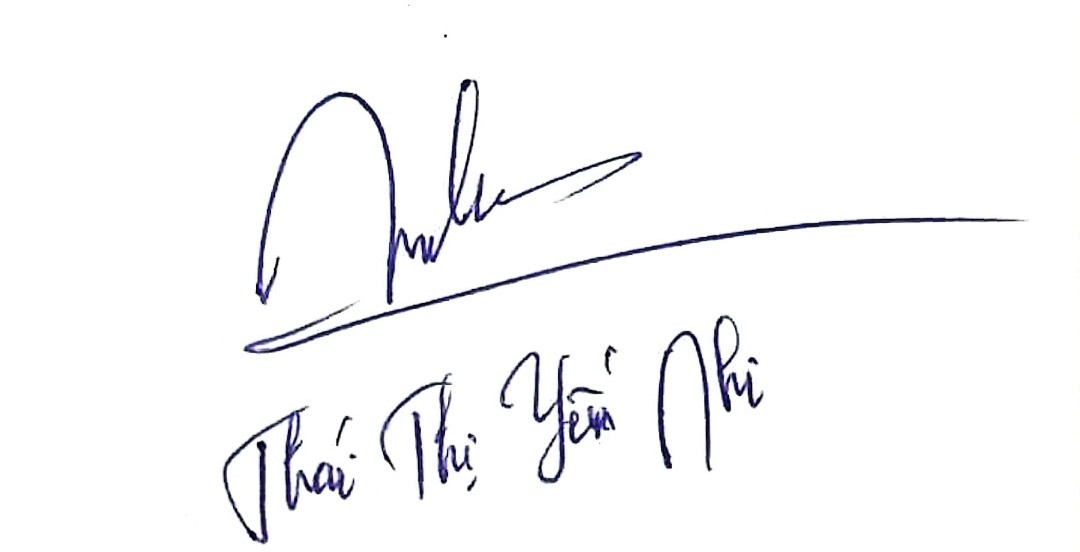 Thái Thị Yến Nhi